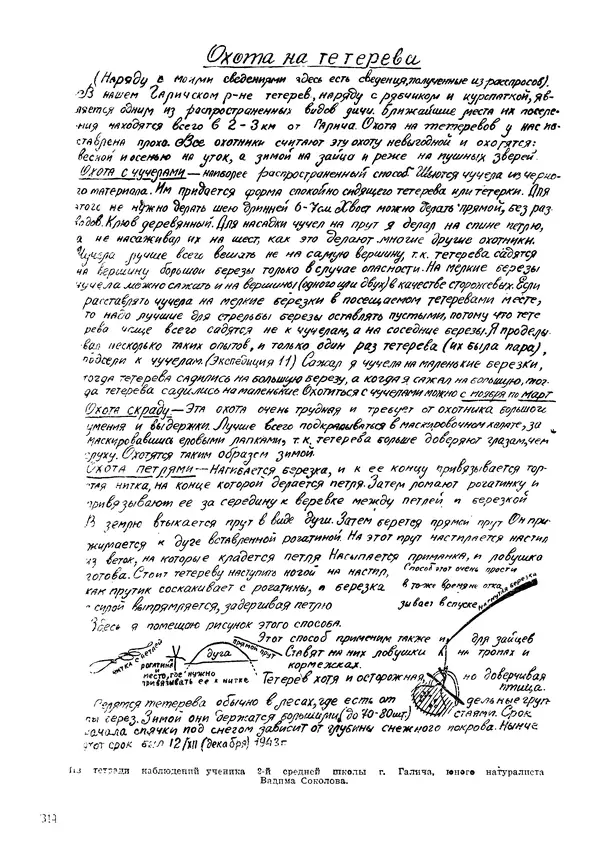 Охота на тетерева
(Наряду с моими сведениями здесь есть сведения, полученные из расспросов).
В нашем Галичском р-не тетерев, наряду с рябчиком и куропаткой, яв-
ляется одним из распространенных видов дичи. Ближайшие места их поселе-
ния находятся всего в 2-3 км от Галича. Охота на тетеревов у нас по-
ставлена плохо. Все охотники считают эту охоту невыгодной и охотятся:
весной и осенью на уток, а зимой на зайца и реже на пушных зверей.
Охота с чучелами — наиболее распространенный способ. Шьются чучела из черно-
го материала. Им придается форма спокойно сидящего тетерева или тетерки. Для
этого не нужно делать шею длинней 6-7см. Хвост можно делать прямой, без раз
водов. Клюв деревянный. Для насадки чучел на прут я делал на спине петлю,
а не насаживал их на шест, как это делают многие другие охотники.
Чучела лучше всего вешать не на самую вершину, т.к. тетерева садятся
на вершину большой березы только в случае опасности. На мелкие березы
чучела можно сажать и на вершины (одного или двух) в качестве сторожевых. Если
расставлять чучела на мелкие березки в посещаемом тетеревами месте,
то надо лучшие для стрельбы березы оставлять пустыми, потому что тете
рева чаще всего садятся не к чучелам, а на соседние березы. Я проделы-
вал несколько таких опытов, и только один раз тетерева (их была пара),
подсели к чучелам. (Экспедиция 11) Сажал я чучела на маленькие березки,
тогда тетерева садились на большую березу, а когда я сажал на большую, тог-
да тетерева садились на маленькие. Охотиться с чучелами можно с ноября по март
Охота скраду — Эта охота очень трудная и требует от охотника большого
умения и выдержки. Лучше всего подкрадываться в маскировочном халате, за
маскировавшись еловыми лапками, т.к. тетерева больше доверяют глазам, чем
слуху. Охотятся таким образом зимой.
Охота петлями — Нагибается березка, и к ее концу привязывается тол-
стая нитка, на конце которой делается петля. Затем ломают рогатинку и
привязывают ее за середину к веревке между петлей и березкой
В землю втыкается прут в виде дуги. Затем берется прямой прут Он при-
жимается к дуге вставленной рогатиной. На этот прут настилается настил
из веток, на которые кладется петля Насыпается приманка, и ловушка
готова. Стоит тетереву наступить ногой на настил,
Способ этот очень прост и
как прутик соскакивает с рогатины, а березка
в то же время не отка
с силой выпрямляется, задерживая петлю
зывает в спуске
нагнутая березка
Здесь я помещаю рисунок этого способа.
Этот способ применим также и для зайцев
нитка с петлей
рогатина
дуга
прямой прут
и место, где нужно
привязывать ее к нитке
Ставят на них ловушки на тропах и
кормежках.
Тетерев хотя и осторожная, но доверчивая
птица.
Водятся тетерева обычно в лесах, где есть отдельные груп
пы берез. Зимой они держатся большими (до 70-80 шт.) стаями. Срок
начала спячки под снегом зависит от глубины снежного покрова. Нынче
этот срок был 12/XII (декабря) 1943г
Из тетради наблюдений ученика 2-й средней школы г. Галича, юного натуралиста
Вадима Соколова.
314